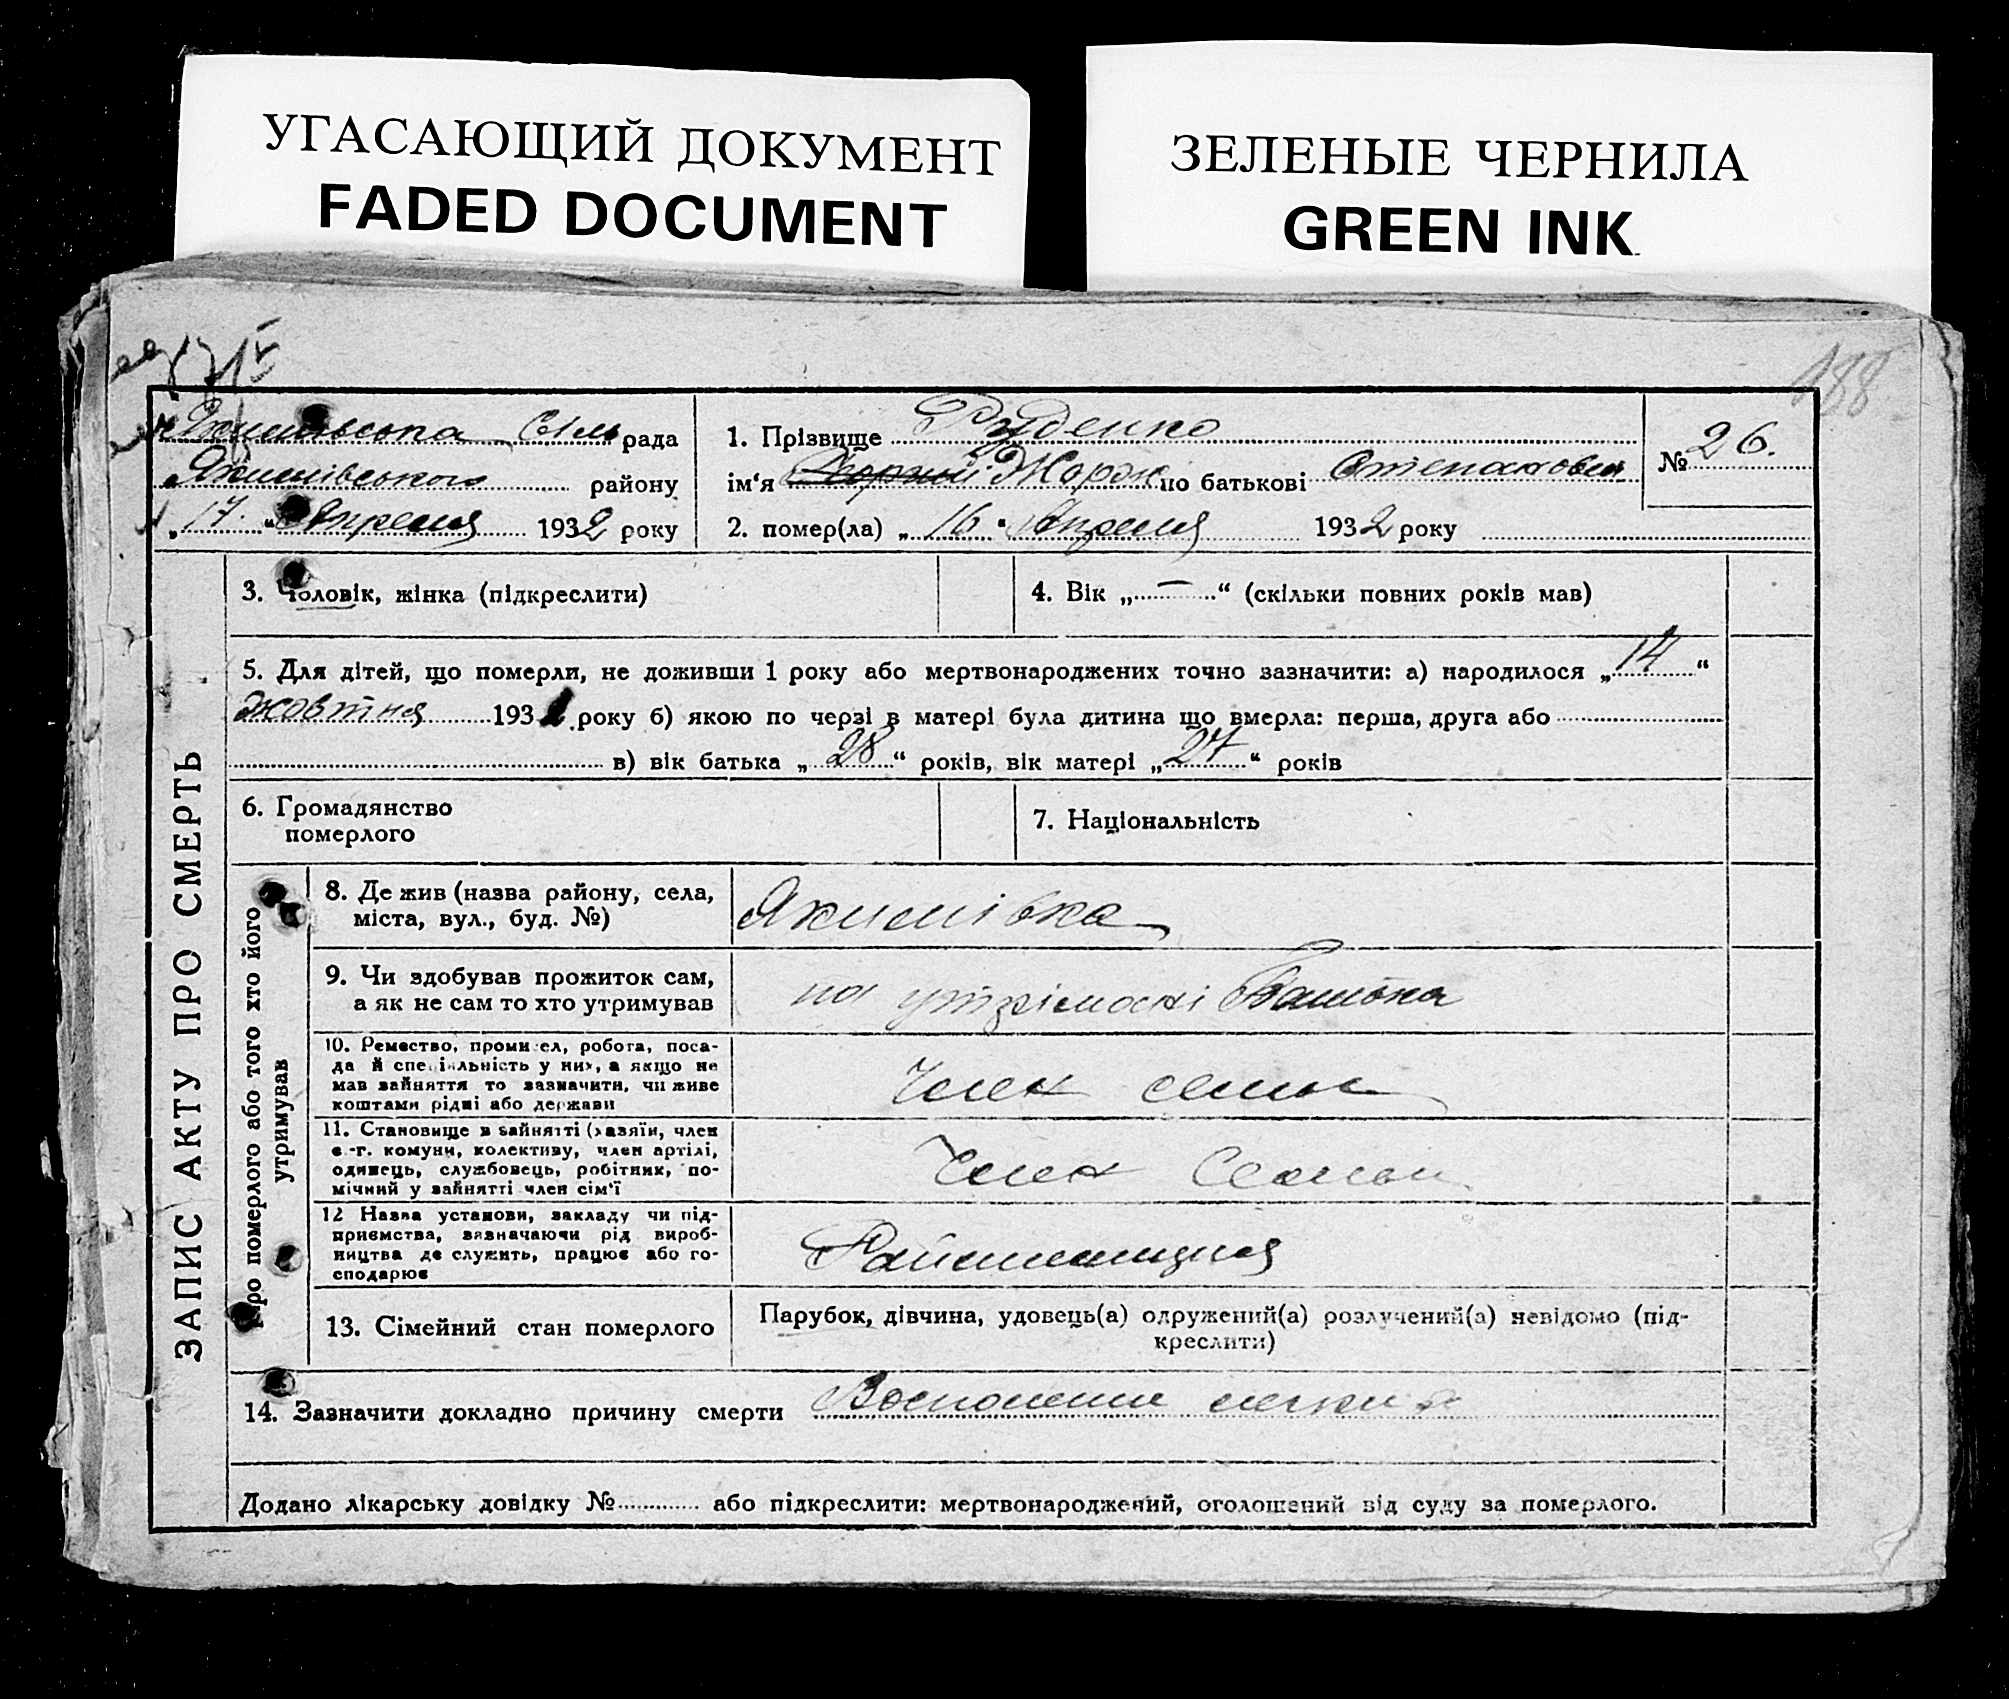 УГАСАЮЩИЙ ДОКУМЕНТ
FADED DOCUMENT
ЗЕЛЕНЫЕ ЧЕРНИЛА
GREEN INK
188
Сіль рада
Якимівського району
„17“ Апреля 1932 року
1. Прізвище Руденко
ім‘я Жорж по батькові Степанович
2. помер(ла) „16“ Апреля 1932 року
№ 26.
ЗАПИС АКТУ ПРО СМЕРТЬ
3. Чоловік, жінка (підкреслити)
4. Вік „—“ (скільки повних років мав)
5. Для дітей, що померли, не доживши 1 року або мертвонароджених точно зазначити: а) народилося „14“
жовтня 1931 року б) якою по черзі в матері була дитина що вмерла: перша, друга або
в) вік батька „28“ років, вік матері „27“ років
6. Громадянство
померлого
7. Національність
Про померлого або того хто його
утримував
8. Де жив (назва району, села,
міста, вул., буд. №)
Якимівка
9. Чи здобував прожиток сам,
а як не сам то хто утримував
на утріманні Батька
10. Ремество, промисел, робота, поса-
да й спеціяльність у них, а якщо не
мав зайняття то зазначити, чи живе
коштами рідні або держави
Член семьи
11. Становище в зайнятті (хазяїн, член
с.-г. комуни, колективу, член артілі,
одинець, службовець, робітник, по-
мічний у зайнятті член сім‘ї
Член Семьи
12 Назва установи, закладу чи під-
приємства, зазначаючи рід вироб-
ництва де служить, працює або го-
сподарює
Райміліція
13. Сімейний стан померлого
Парубок, дівчина, удовець(а) одружений(а) розлучений(а) невідомо (під-
креслити)
14. Зазначити докладно причину смерти Воспаление легких
Додано лікарську довідку № або підкреслити: мертвонароджений, оголошений від суду за померлого.